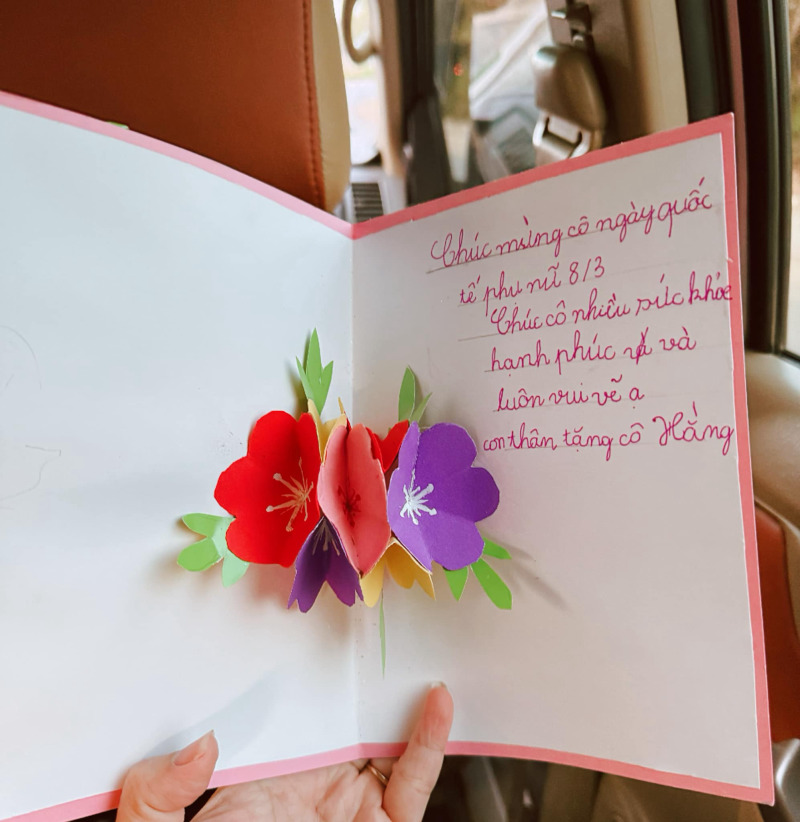 Chúc mừng cô ngày quốc
tế phụ nữ 8/3
Chúc cô nhiều sức khỏe
hạnh phúc và
luôn vui vẽ ạ
con thân tặng cô Hằng